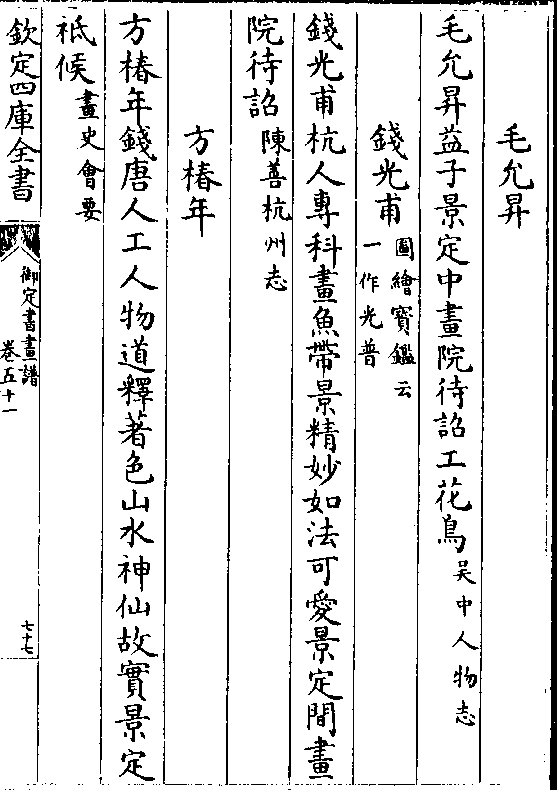 毛允昇
毛允昇益子景定中畫院待詔工花鳥吳中人物志
錢光甫圖繪寳鑑云一作光普
錢光甫杭人專科畫魚帶景精妙如法可愛景定間畫
院待詔陳善杭州志
方椿年
方椿年錢唐人工人物道釋著色山水神仙故實景定
祗候畫史會要
欽定四庫全書
御定書畫譜
卷五十一
七十七